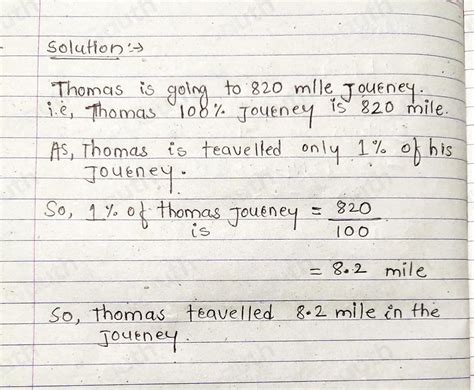 Solution :→
Thomas is going to 820 mile Journey.
i.e, Thomas 100% Journey is 820 mile.
As, Thomas is travelled only 1% of his
Journey.
So, 1% of Thomas Journey = 820
is 100
= 8.2 mile
So, Thomas travelled 8.2 mile in the
Journey.